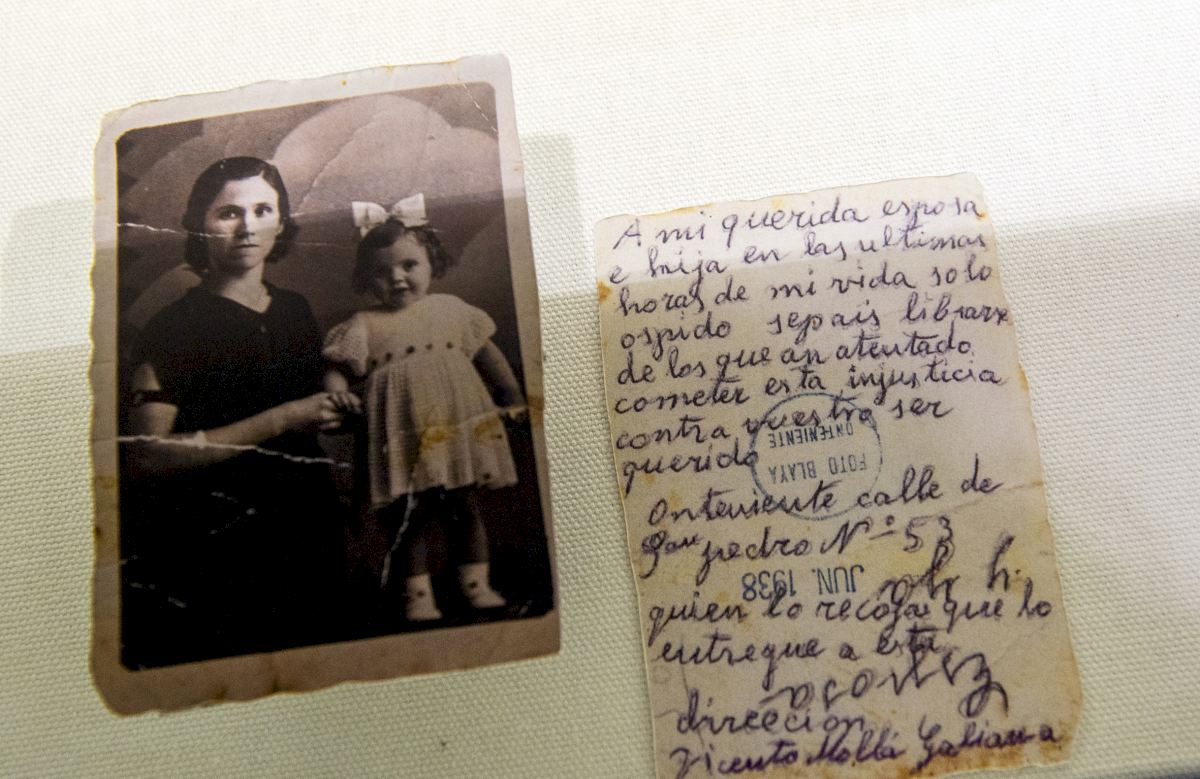 A mi querida esposa
e hija en las ultimas
horas de mi vida solo
ospido sepais librarx
de los que an atentado
cometer esta injusticia
contra vuestro ser
querido
FOTO BLAYA
ONTENIENTE
Onteniente calle de
San pedro Nº 53
JUN. 1938
quien lo recoja que lo
entregue a esta
direccion
Vicento Mollá Galiana